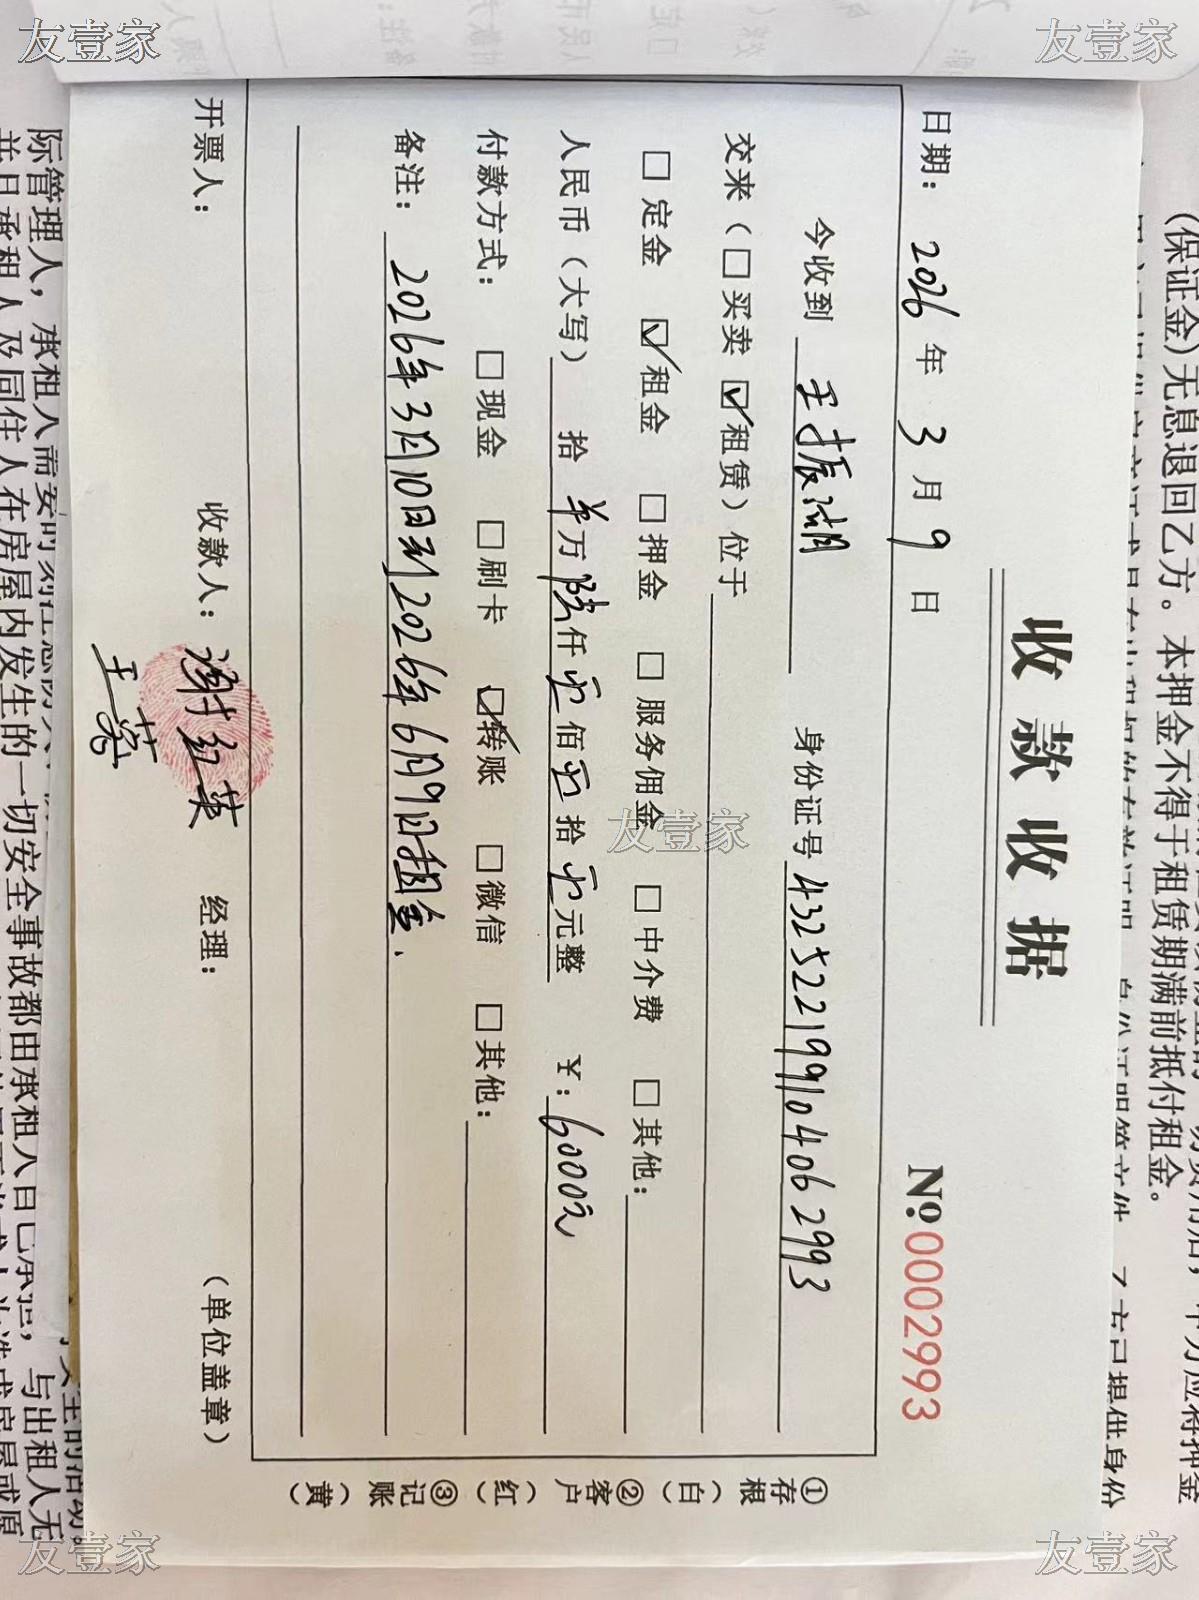 收款收据
No.0002993
日期：2026年3月9日
今收到 王振湖 身份证号 432522199104062993
交来（□买卖 ☑租赁）位于
□定金 ☑租金 □押金 □服务佣金 □中介费 □其他：
人民币（大写） 拾 万陆仟 佰 拾 元整 ￥：6000元
付款方式： □现金 □刷卡 ☑转账 □微信 □其他：
备注：2026年3月10日到2026年6月9日租金.
开票人： 收款人：谢红英 经理： （单位盖章）
①存根（白） ②客户（红） ③记账（黄）
（保证金）无息退回乙方。本押金不得于租赁期满前抵付租金。
际管理人，承租人需要
并且承租人及同住人在房屋内发生的一切安全事故都由承租人自己承担，与出租人无
友壹家
友壹家
友壹家
友壹家
友壹家